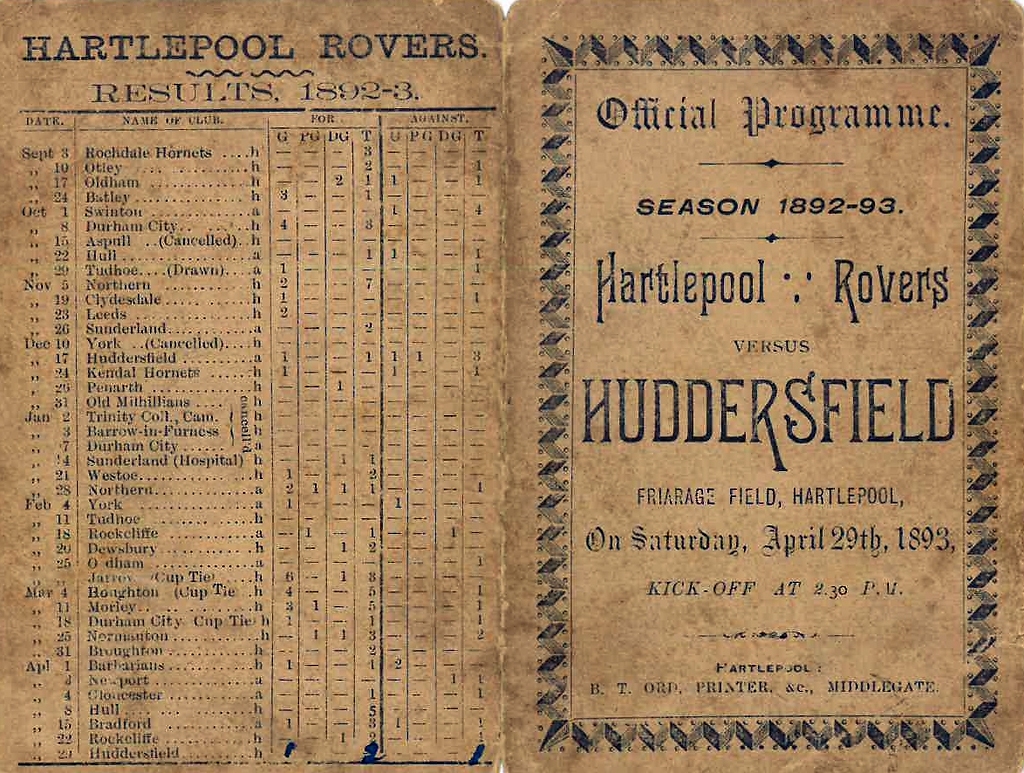 HARTLEPOOL ROVERS.
RESULTS, 1892-3.
DATE. NAME OF CLUB. FOR AGAINST.
G PG DG T G PG DG T
Sept 3 Rochdale Hornets ....h — — — 3 — — — —
„ 10 Otley ............h — — — 2 — — — 1
„ 17 Oldham ............h — — 2 1 1 — — 1
„ 24 Batley ............h 3 — — 1 — — — —
Oct 1 Swinton ............a — — — — 1 — — 4
„ 8 Durham City.. ......h 4 — — 3 — — — —
„ 15 Aspull ..(Cancelled)..h — — — — — — — —
„ 22 Hull ............a — — — 1 1 — — 1
„ 29 Tudhoe....(Drawn)....a 1 — — — — — — 1
Nov 5 Northern ............h 2 — — 7 — — — —
„ 19 Clydesdale............h 1 — — — — — — 1
„ 23 Leeds ............h 2 — — — — — — —
„ 26 Sunderland............a — — — 2 — — — —
Dec 10 York ..(Cancelled)....h — — — — — — — —
„ 17 Huddersfield ..........a 1 — — 1 1 1 — 3
„ 24 Kendal Hornets ......h 1 — — — 1 — — 1
„ 26 Penarth ............h — — 1 — — — — —
„ 31 Old Millhillians .... h — — — — — — — —
Jan 2 Trinity Coll., Cam. h — — — — — — — —
„ 3 Barrow-in-Furness h — — — — — — — —
cancell'd
„ 7 Durham City ...... a — — — — — — — —
„ 14 Sunderland (Hospital) h — — 1 1 — — — —
„ 21 Westoe............h 1 — — 2 — — — —
„ 28 Northern............a 2 1 1 1 — — — 1
Feb 4 York ............a 1 — — — 1 — — —
„ 11 Tudhoe ............h — — — — — — — —
„ 18 Rockcliffe ............a — 1 — 1 — — 1 —
„ 20 Dewsbury ............h — — 1 2 — — — —
„ 25 Oldham ............a — — — — — — — 1
„ „ Jarrow (Cup Tie) ....h 6 — 1 3 — — — —
Mar 4 Houghton (Cup Tie .h 4 — — 5 — — — 1
„ 11 Morley..............h 3 1 — 5 — — — 1
„ 18 Durham City Cup Tie h 1 — — 1 — — — 1
„ 25 Normanton ............h — 1 1 3 — — — 2
„ 31 Broughton ............h — — — 2 — — — —
Apl 1 Barbarians............h 1 — — 1 2 — — —
„ 3 Newport ............a — — — — — — 1 1
„ 4 Gloucester ............a — — — 1 — — — 1
„ 8 Hull ............h — — — 5 — — — —
„ 15 Bradford ............a 1 — — 3 1 — — 1
„ 22 Rockcliffe ............h — — 1 2 — — — 1
„ 29 Huddersfield ..........h 1 2 1
Official Programme.
SEASON 1892-93.
Hartlepool Rovers
VERSUS
HUDDERSFIELD
FRIARAGE FIELD, HARTLEPOOL,
On Saturday, April 29th, 1893,
KICK-OFF AT 2.30 P.M.
HARTLEPOOL:
B. T. ORD, PRINTER, &c., MIDDLEGATE.